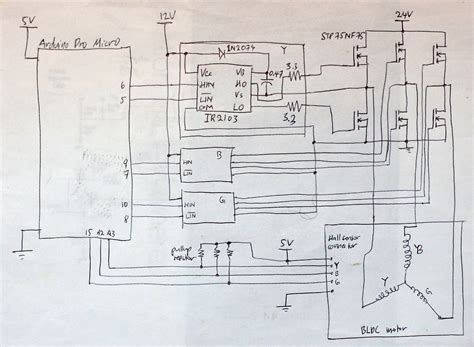 5V
12V
24V
Arduino Pro Micro
1N2074
Y
STP75NF75
Vcc
VB
HIN
HO
LIN
Vs
COM
LO
IR2103
0.47
3.3
3.3
6
5
9
7
10
8
HIN
LIN
B
HIN
LIN
G
15 A2 A3
pullup
resistor
5V
Hall sensor
connector
Y
B
G
Y
B
G
BLDC motor